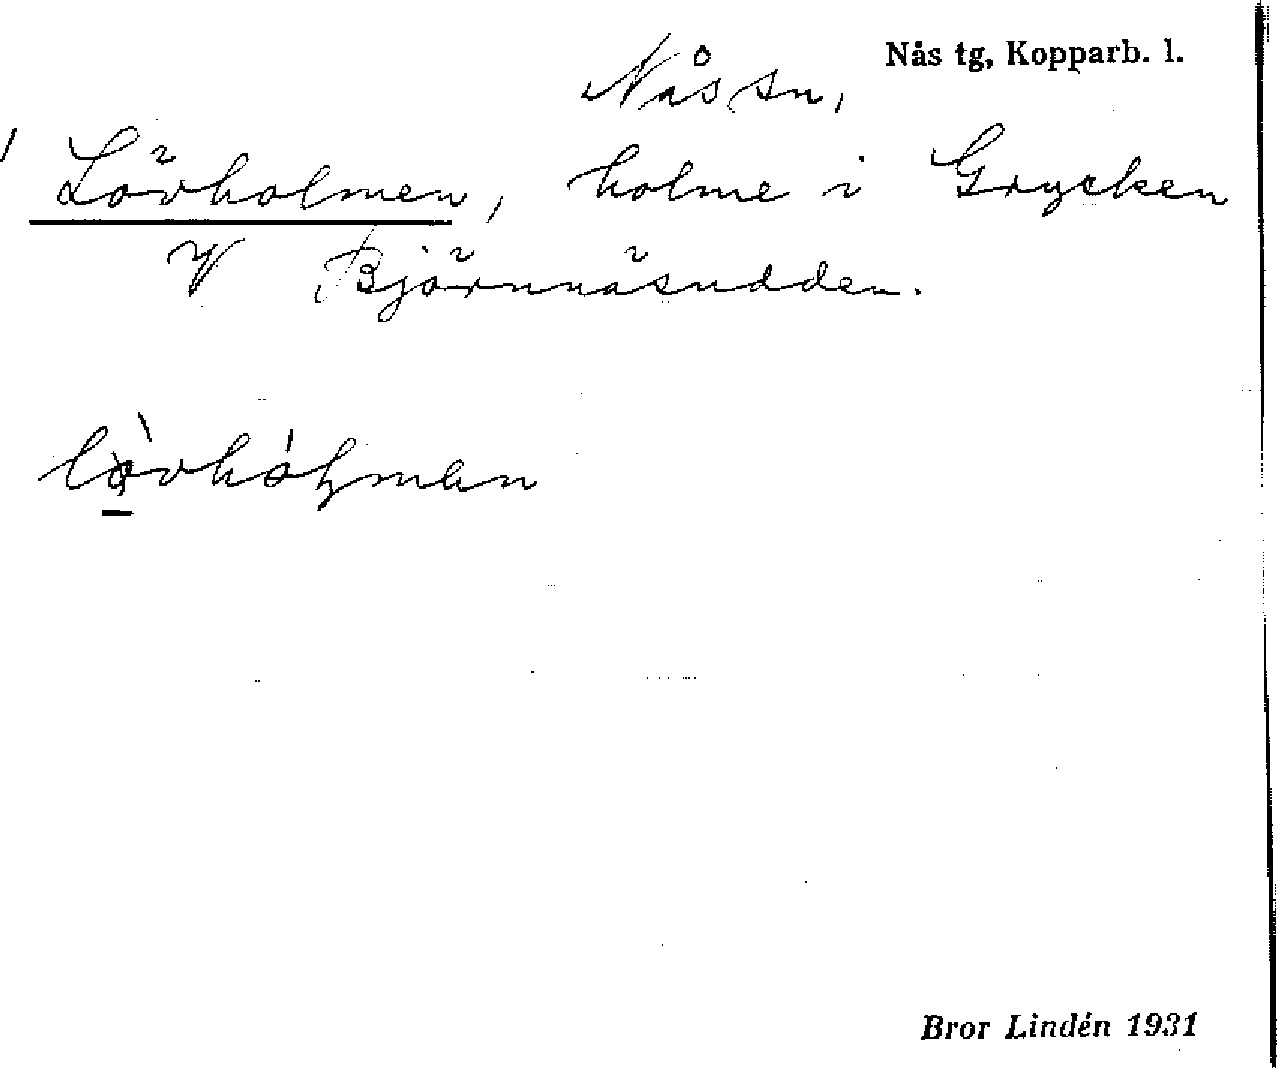 Nås tg, Kopparb. l.
Nås sn,
Lövholmen, holme i Grycken
V Björnnäsudden.
Bror Lindén 1931